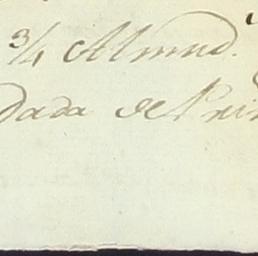 3/4 Almud.
dada de Pri